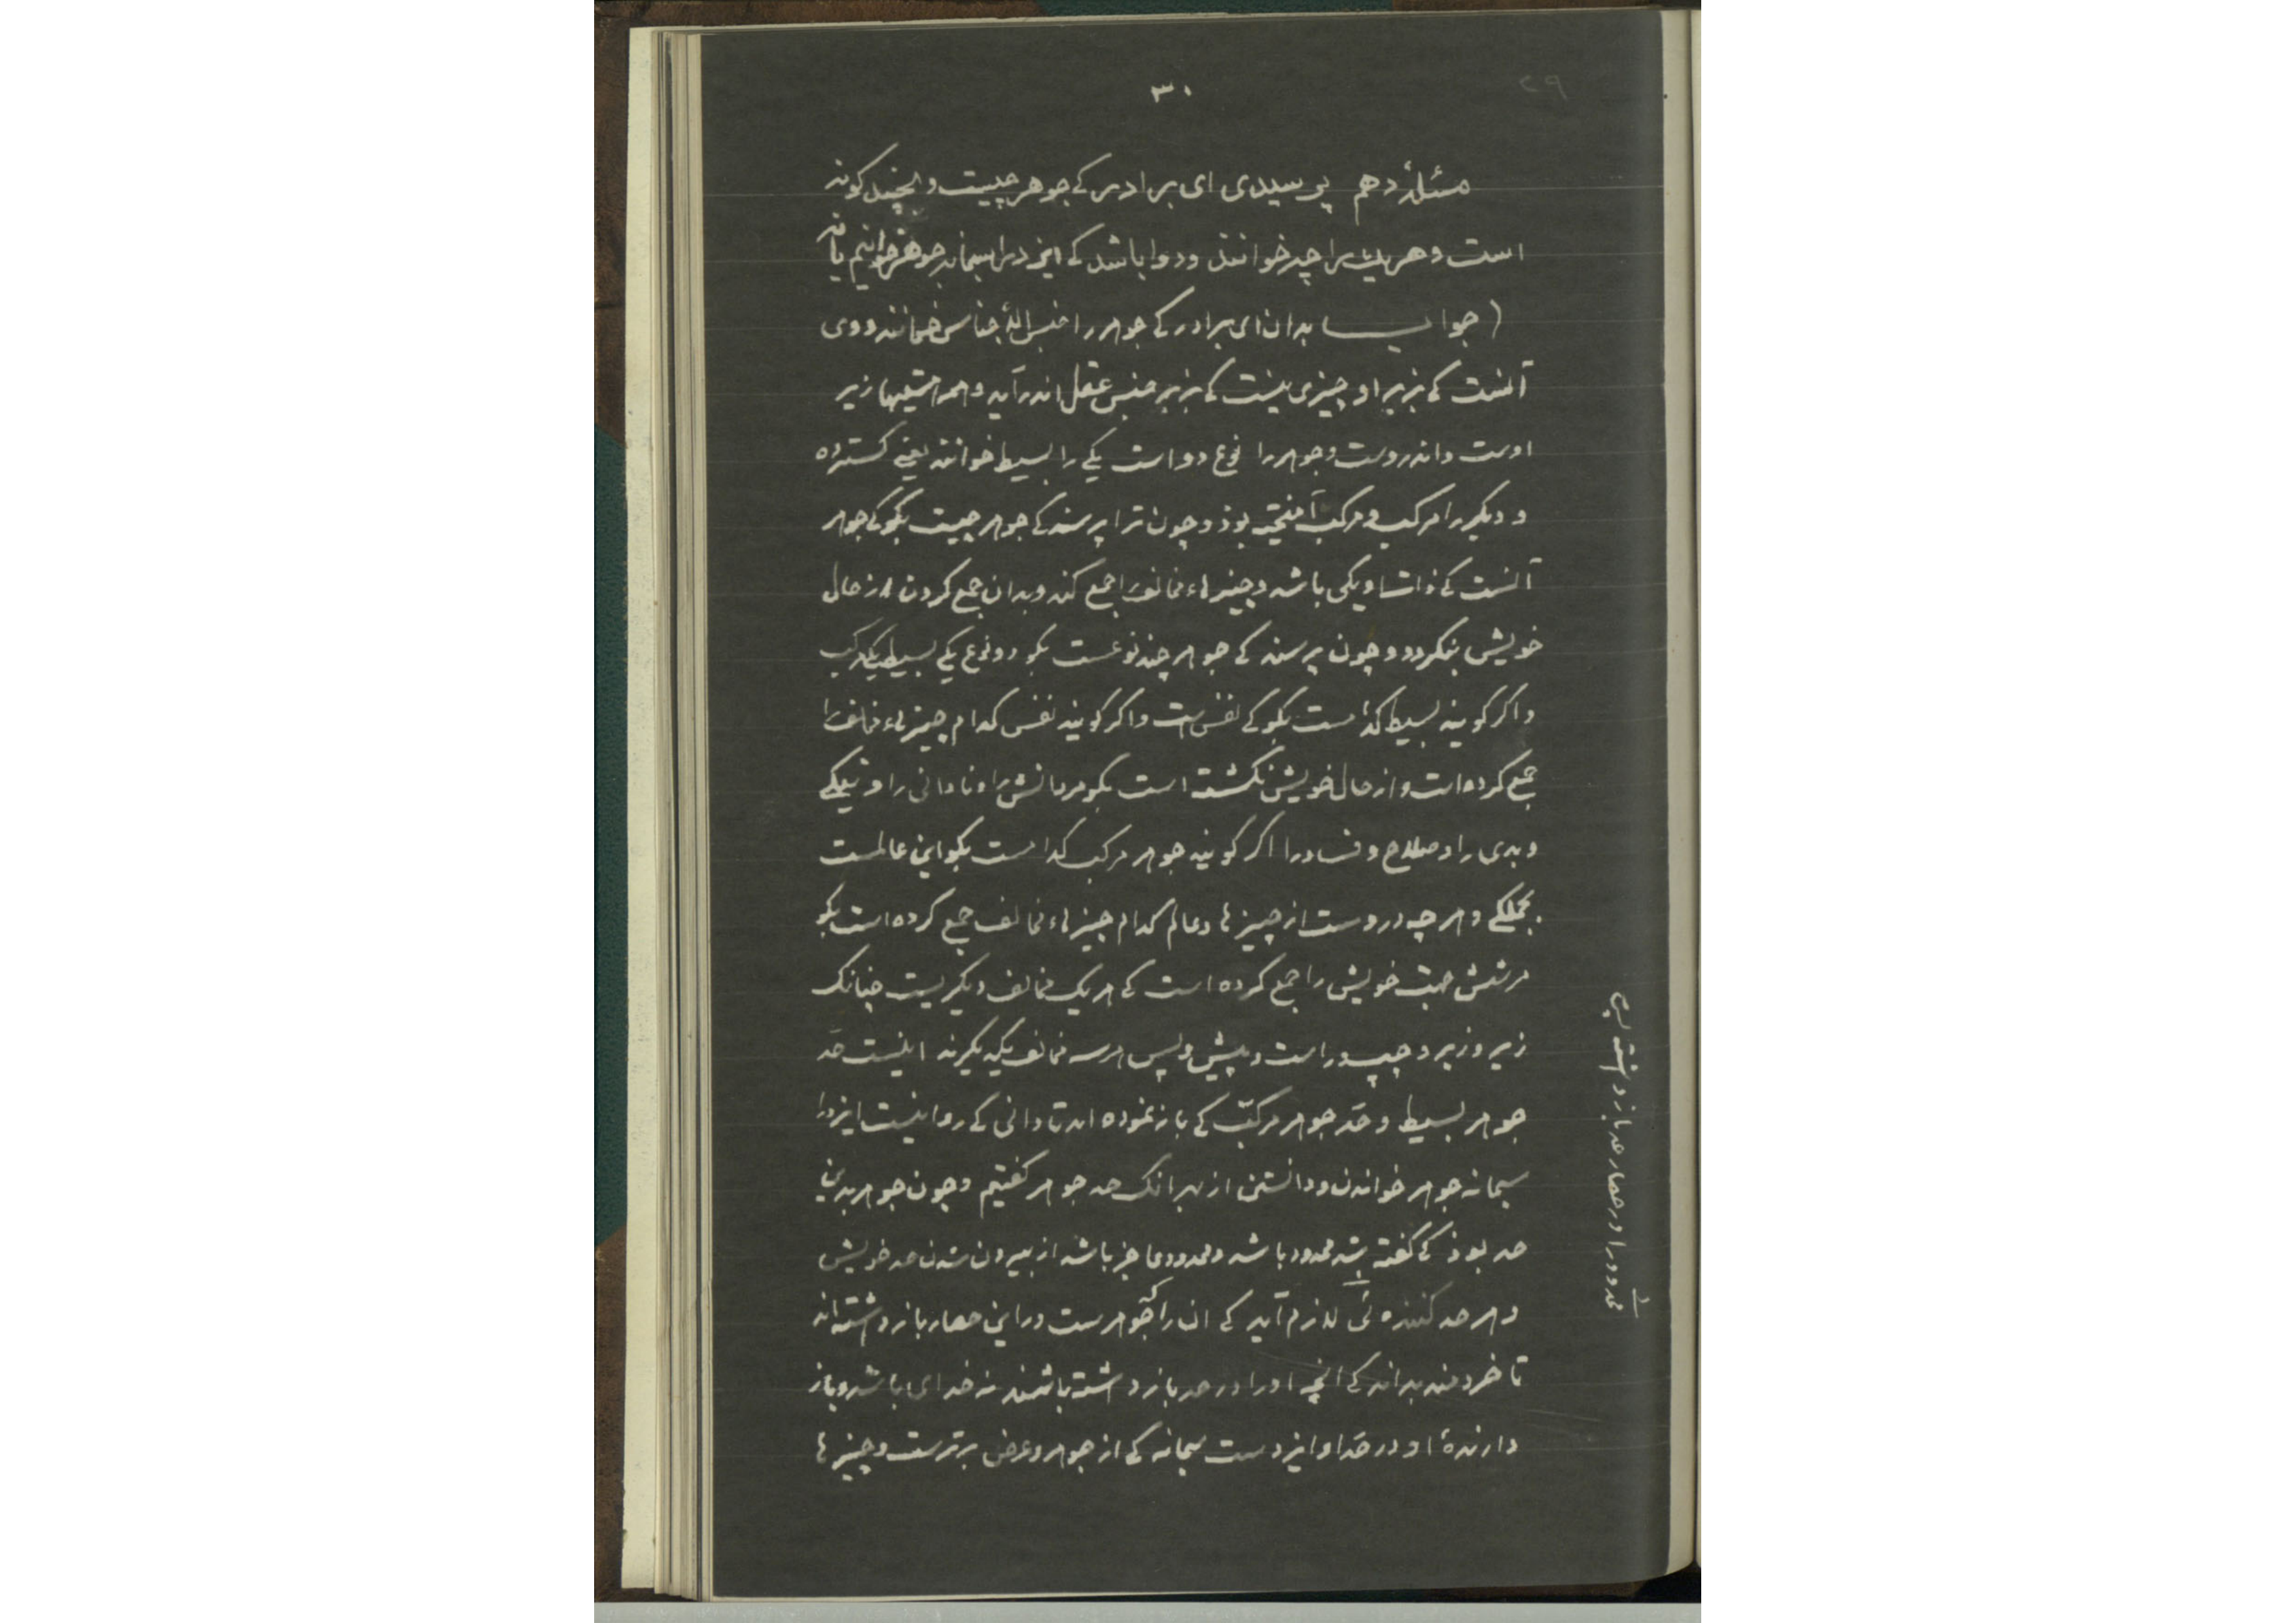 ۳۰
۲۹
مسئلهٔ دهم پرسیدی ای برادر کے جوهر چیست و بچند کونه
است و هر یک را چه خوانند و روا باشد کے ایزد را سبحانه جوهر خوانیم یا نه
(جواب بدان ای برادر کے جوهر را جنس الاجناس خوانند و وی
آنست کے بزیر او چیزی نیست کے بزیر جنس عقل اندر آید و همه هستیها زیر
اوست و اندروست و جوهر را نوع دو است یکے را بسیط خوانند یعنے کسترده
و دیکر را مرکب و مرکب آمیخته بوذ و چون ترا پرسند کے جوهر چیست بکو کے جوهر
آنست کے ذات او یکی باشد و چیزهاء مخالف را جمع کند و بدان جمع کردن از حال
خویش بنکردد و چون پرسند کے جوهر چند نوعست بکو دو نوع یکے بسیط یکے مرکب
و اکر کویند بسیط کدامست بکو کے نفس است و اکر کویند نفس کدام چیزهاء مخالف را
جمع کرده است و از حال خویش نکشته است بکو مر دانش را و نادانی را و نیکے
و بدی را و صلاح و فساد را اکر کویند جوهر مرکب کدامست بکو این عالمست
بجملکے و هر چه دروست از چیزها و عالم کدام چیزهاء مخالف جمع کرده است بکو
مر شش جهت خویش را جمع کرده است کے هر یک مخالف دیکریست چنانک
زیر و زبر و چپ و راست و پیش و پس هر سه مخالف یکدیکرند اینست حد
جوهر بسیط و حد جوهر مرکب کے باز نموده اند تا دانی کے روا نیست ایزد را
سبحانه جوهر خواندن و دانستن از بهر انک حد جوهر کفتیم و چون جوهر بدین
حد بوذ کے کفته شد محدود باشد و محدود عاجز باشد از بیرون شدن حد خویش
و هر حد کننده ئی لازم آید کے ان را کجوهرست در این حصار باز داشته اند
تا خردمند بداند کے انچه او را در حد باز داشته باشند نه خدای باشد و باز
دارندهٔ او در حد او ایزدست سبحانه کے از جوهر و عرض برترست و چیزها
محدود را در حصار حد باز داشته